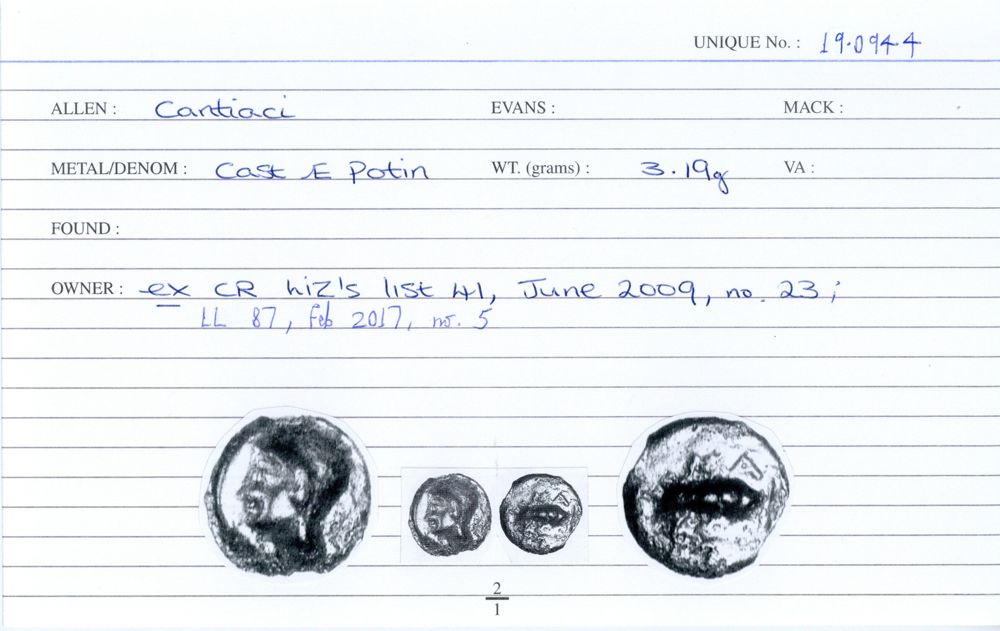 UNIQUE No. : 19.0944
ALLEN : Cantiaci EVANS : MACK :
METAL/DENOM : Cast Æ Potin WT. (grams) : 3.19g VA :
FOUND :
OWNER : ex CR Liz's list 41, June 2009, no. 23 ;
LL 87, Feb 2017, no. 5
2
1